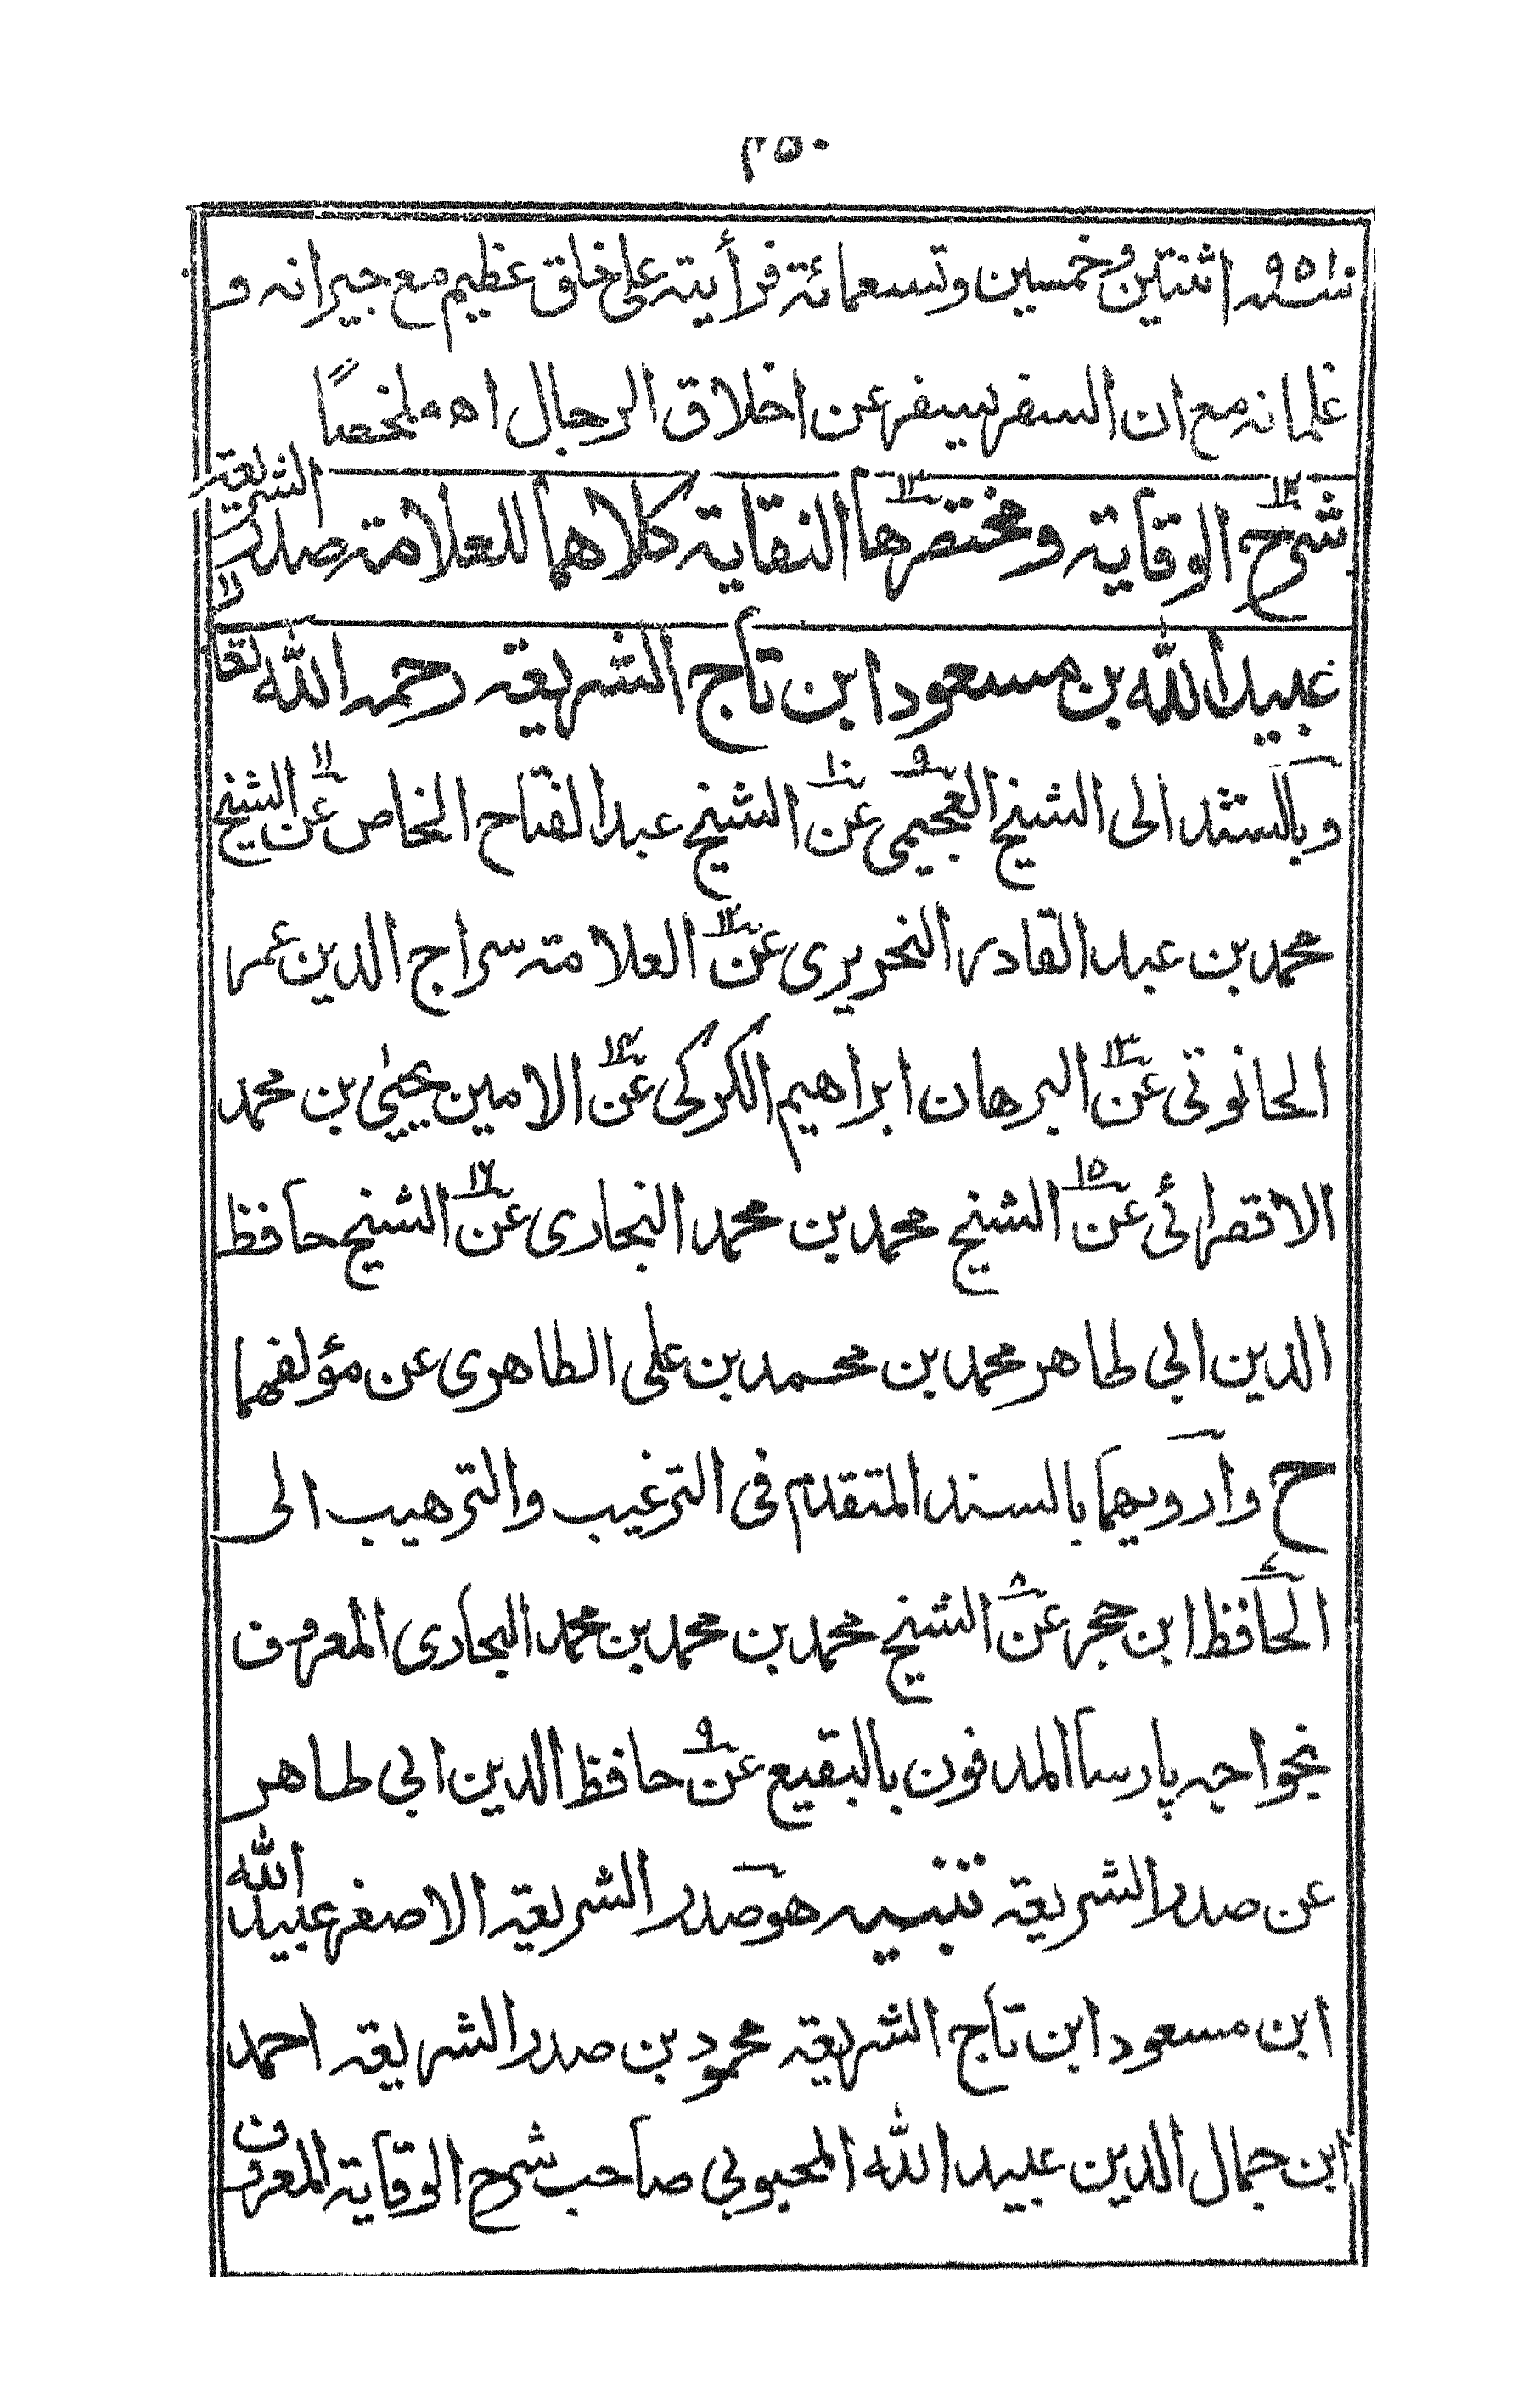 ٢٥٠
سنة ٩٥١ اثنتين وخمسين وتسعمائة فرأيته على خلق عظيم مع جيرانه و
غلمانه مع ان السفر يسفر عن اخلاق الرجال اهـ ملخصاً
شرح الوقاية ومختصرها النقاية كلاهما للعلامة صدر الشريعة
عبيد الله بن مسعود ابن تاج الشريعة رحمه الله تعالى
وبالسند الى الشيخ العجيمى عن الشيخ عبد الفتاح الخاص عن الشيخ
محمد بن عبد القادر النحريرى عن العلامة سراج الدين عمر
الحانوتى عن البرهان ابراهيم الكركى عن الامين يحيىٰ بن محمد
الاقصرائى عن الشيخ محمد بن محمد البخارى عن الشيخ حافظ
الدين ابى طاهر محمد بن محمد بن على الطاهرى عن مؤلفهما
ح وارويهما بالسند المتقدم فى الترغيب والترهيب الى
الحافظ ابن حجر عن الشيخ محمد بن محمد بن محمد البخارى المعروف
بخواجه پارسا المدفون بالبقيع عن حافظ الدين ابى طاهر
عن صدر الشريعة تنبيه هو صدر الشريعة الاصغر عبيد الله
ابن مسعود ابن تاج الشريعة محمود بن صدر الشريعة احمد
ابن جمال الدين عبيد الله المحبوبى صاحب شرح الوقاية المعروف